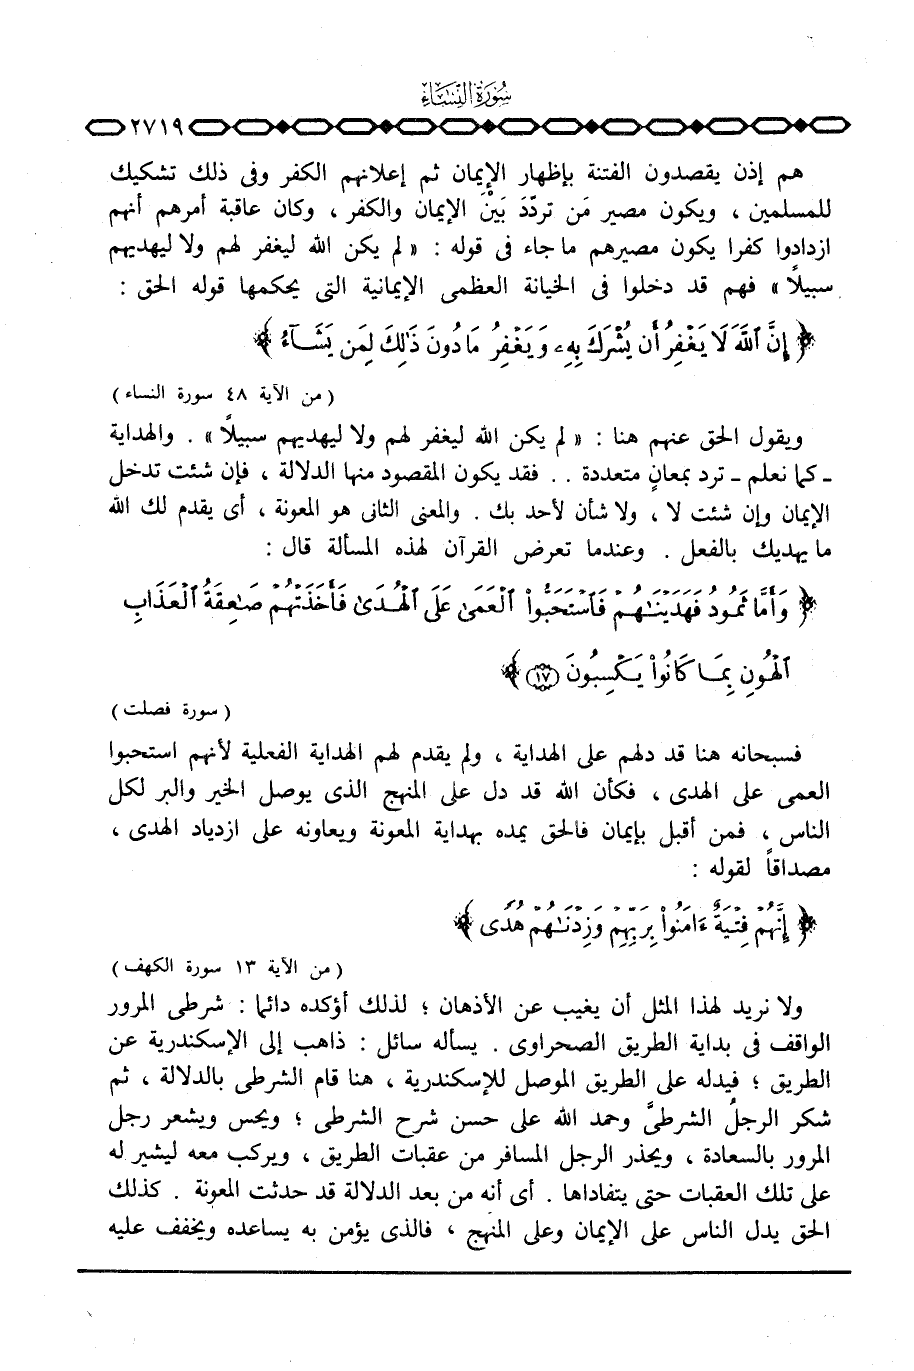 سُورَةُ النِّسَاءِ
٢٧١٩
هم إذن يقصدون الفتنة بإظهار الإيمان ثم إعلانهم الكفر وفى ذلك تشكيك
للمسلمين ، ويكون مصير مَن تردّدَ بَيْنَ الإيمان والكفر ، وكان عاقبة أمرهم أنهم
ازدادوا كفرا يكون مصيرهم ما جاء فى قوله : « لم يكن الله ليغفر لهم ولا ليهديهم
سبيلاً » فهم قد دخلوا فى الخيانة العظمى الإيمانية التى يحكمها قوله الحق :
﴿ إِنَّ ٱللَّهَ لَا يَغْفِرُ أَن يُشْرَكَ بِهِۦ وَيَغْفِرُ مَا دُونَ ذَٰلِكَ لِمَن يَشَآءُ ﴾
( من الآية ٤٨ سورة النساء )
ويقول الحق عنهم هنا : « لم يكن الله ليغفر لهم ولا ليهديهم سبيلاً » . والهداية
ـ كما نعلم ـ ترد بمعانٍ متعددة . . فقد يكون المقصود منها الدلالة ، فإن شئت تدخل
الإيمان وإن شئت لا ، ولا شأن لأحد بك . والمعنى الثانى هو المعونة ، أى يقدم لك الله
ما يهديك بالفعل . وعندما تعرض القرآن لهذه المسألة قال :
﴿ وَأَمَّا ثَمُودُ فَهَدَيْنَٰهُمْ فَٱسْتَحَبُّوا۟ ٱلْعَمَىٰ عَلَى ٱلْهُدَىٰ فَأَخَذَتْهُمْ صَٰعِقَةُ ٱلْعَذَابِ
ٱلْهُونِ بِمَا كَانُوا۟ يَكْسِبُونَ ۝١٧ ﴾
( سورة فصلت )
فسبحانه هنا قد دلهم على الهداية ، ولم يقدم لهم الهداية الفعلية لأنهم استحبوا
العمى على الهدى ، فكأن الله قد دل على المنهج الذى يوصل الخير والبر لكل
الناس ، فمن أقبل بإيمان فالحق يمده بهداية المعونة ويعاونه على ازدياد الهدى ،
مصداقاً لقوله :
﴿ إِنَّهُمْ فِتْيَةٌ ءَامَنُوا۟ بِرَبِّهِمْ وَزِدْنَٰهُمْ هُدًى ﴾
( من الآية ١٣ سورة الكهف )
ولا نريد لهذا المثل أن يغيب عن الأذهان ؛ لذلك أؤكده دائما : شرطى المرور
الواقف فى بداية الطريق الصحراوى . يسأله سائل : ذاهب إلى الإسكندرية عن
الطريق ؛ فيدله على الطريق الموصل للإسكندرية ، هنا قام الشرطى بالدلالة ، ثم
شكر الرجلُ الشرطىَّ وحمد الله على حسن شرح الشرطى ؛ ويحس ويشعر رجل
المرور بالسعادة ، ويحذر الرجل المسافر من عقبات الطريق ، ويركب معه ليشير له
على تلك العقبات حتى يتفاداها . أى أنه من بعد الدلالة قد حدثت المعونة . كذلك
الحق يدل الناس على الإيمان وعلى المنهج ، فالذى يؤمن به يساعده ويخفف عليه